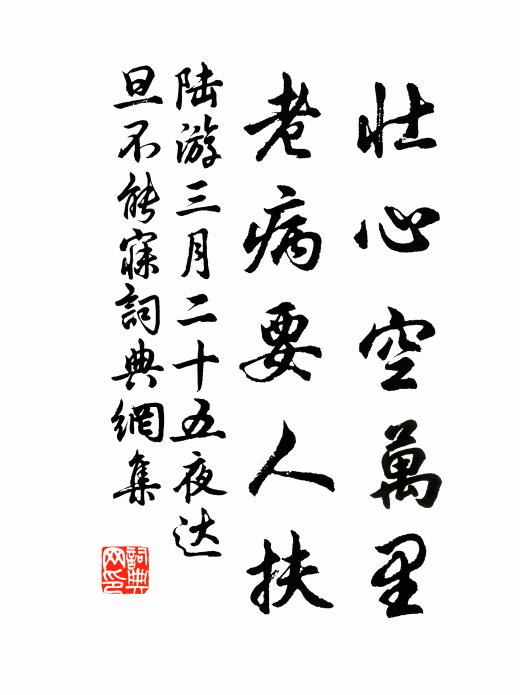 壮心空萬里
老病要人扶
陆游三月二十五夜达
旦不能寐詞典網集
詞典
网印